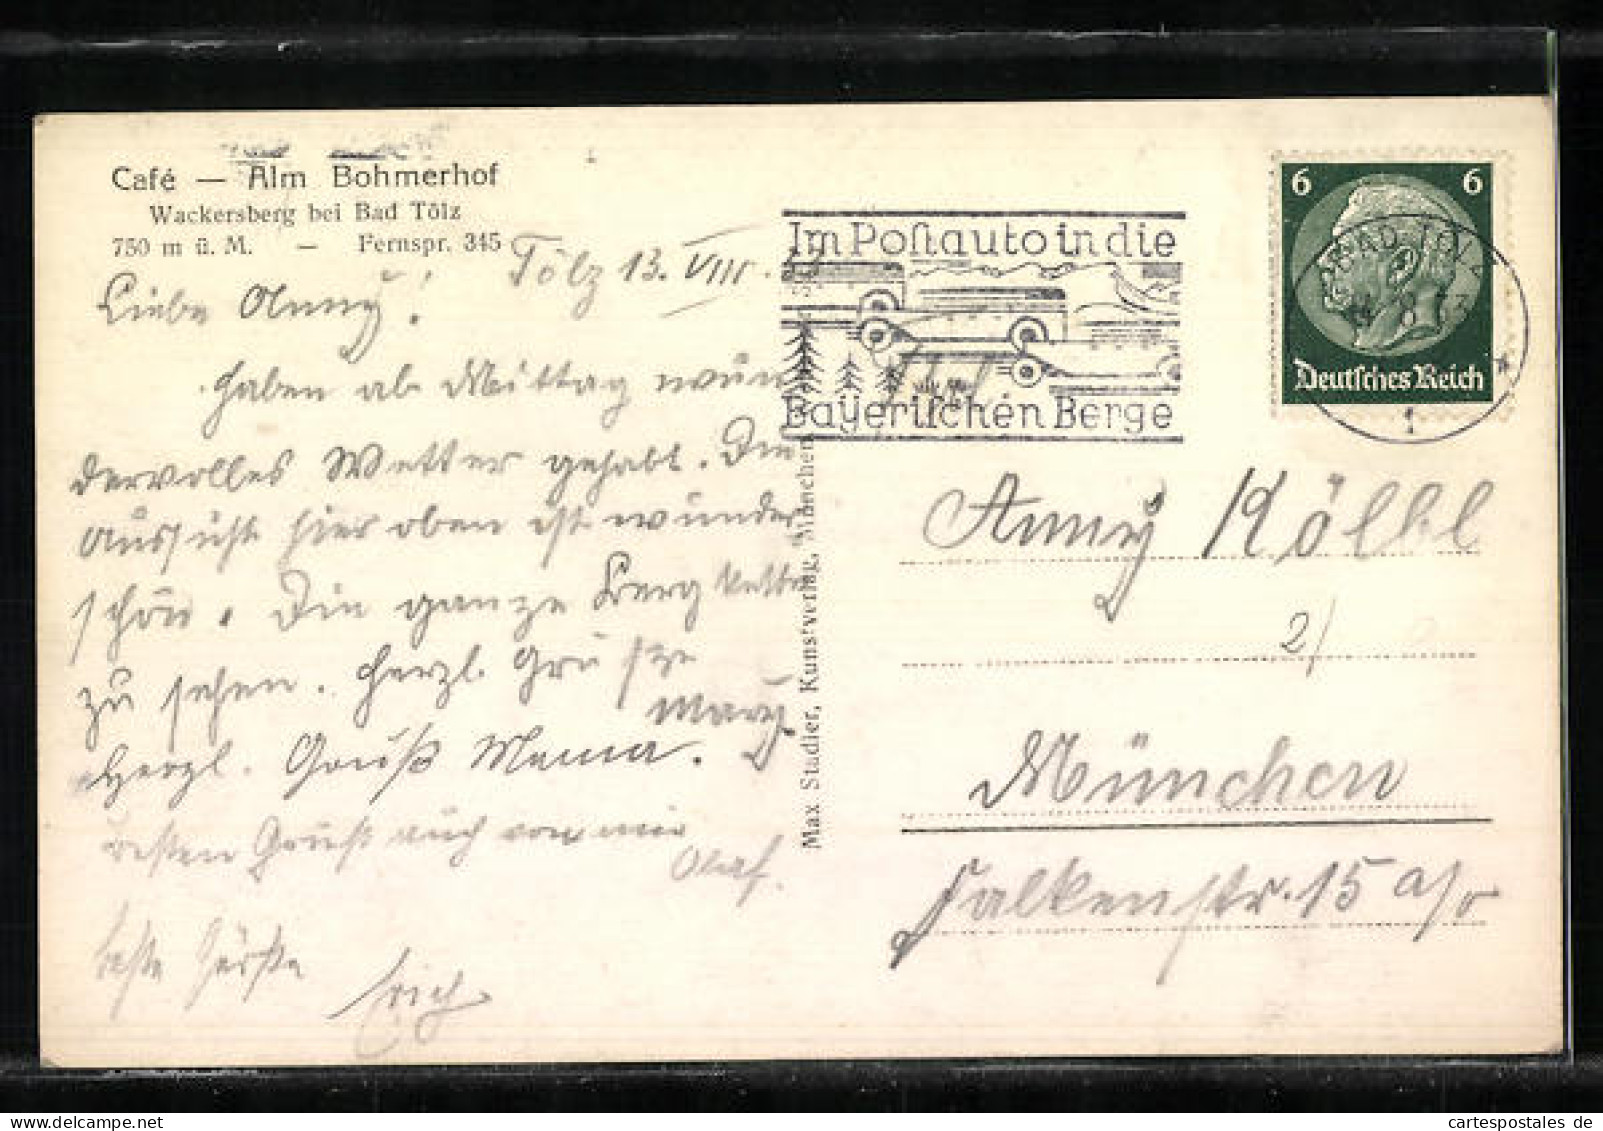 Café — Alm Bohmerhof
Wackersberg bei Bad Tölz
750 m ü. M. — Fernspr. 345
Tölz 13. VIII.
Liebe Anny!
Haben ab Mittag wun
dervolles Wetter gehabt. Die
Aussicht hier oben ist wunder
schön. Die ganze Berg kette
zu sehen. Herzl. Grüsze
Mary
Herzl. Gruß Mama.
besten Gruß auch von mir
Olaf.
beste Grüße
Erich
Max Stadler, Kunstverlag, München
Im Postauto in die
Bayerischen Berge
6 6
Deutsches Reich
BAD TÖLZ
Anny Kölbl
2/
München
Falkenstr. 15 a/o
www.cartespostales.de
cartespostales.de